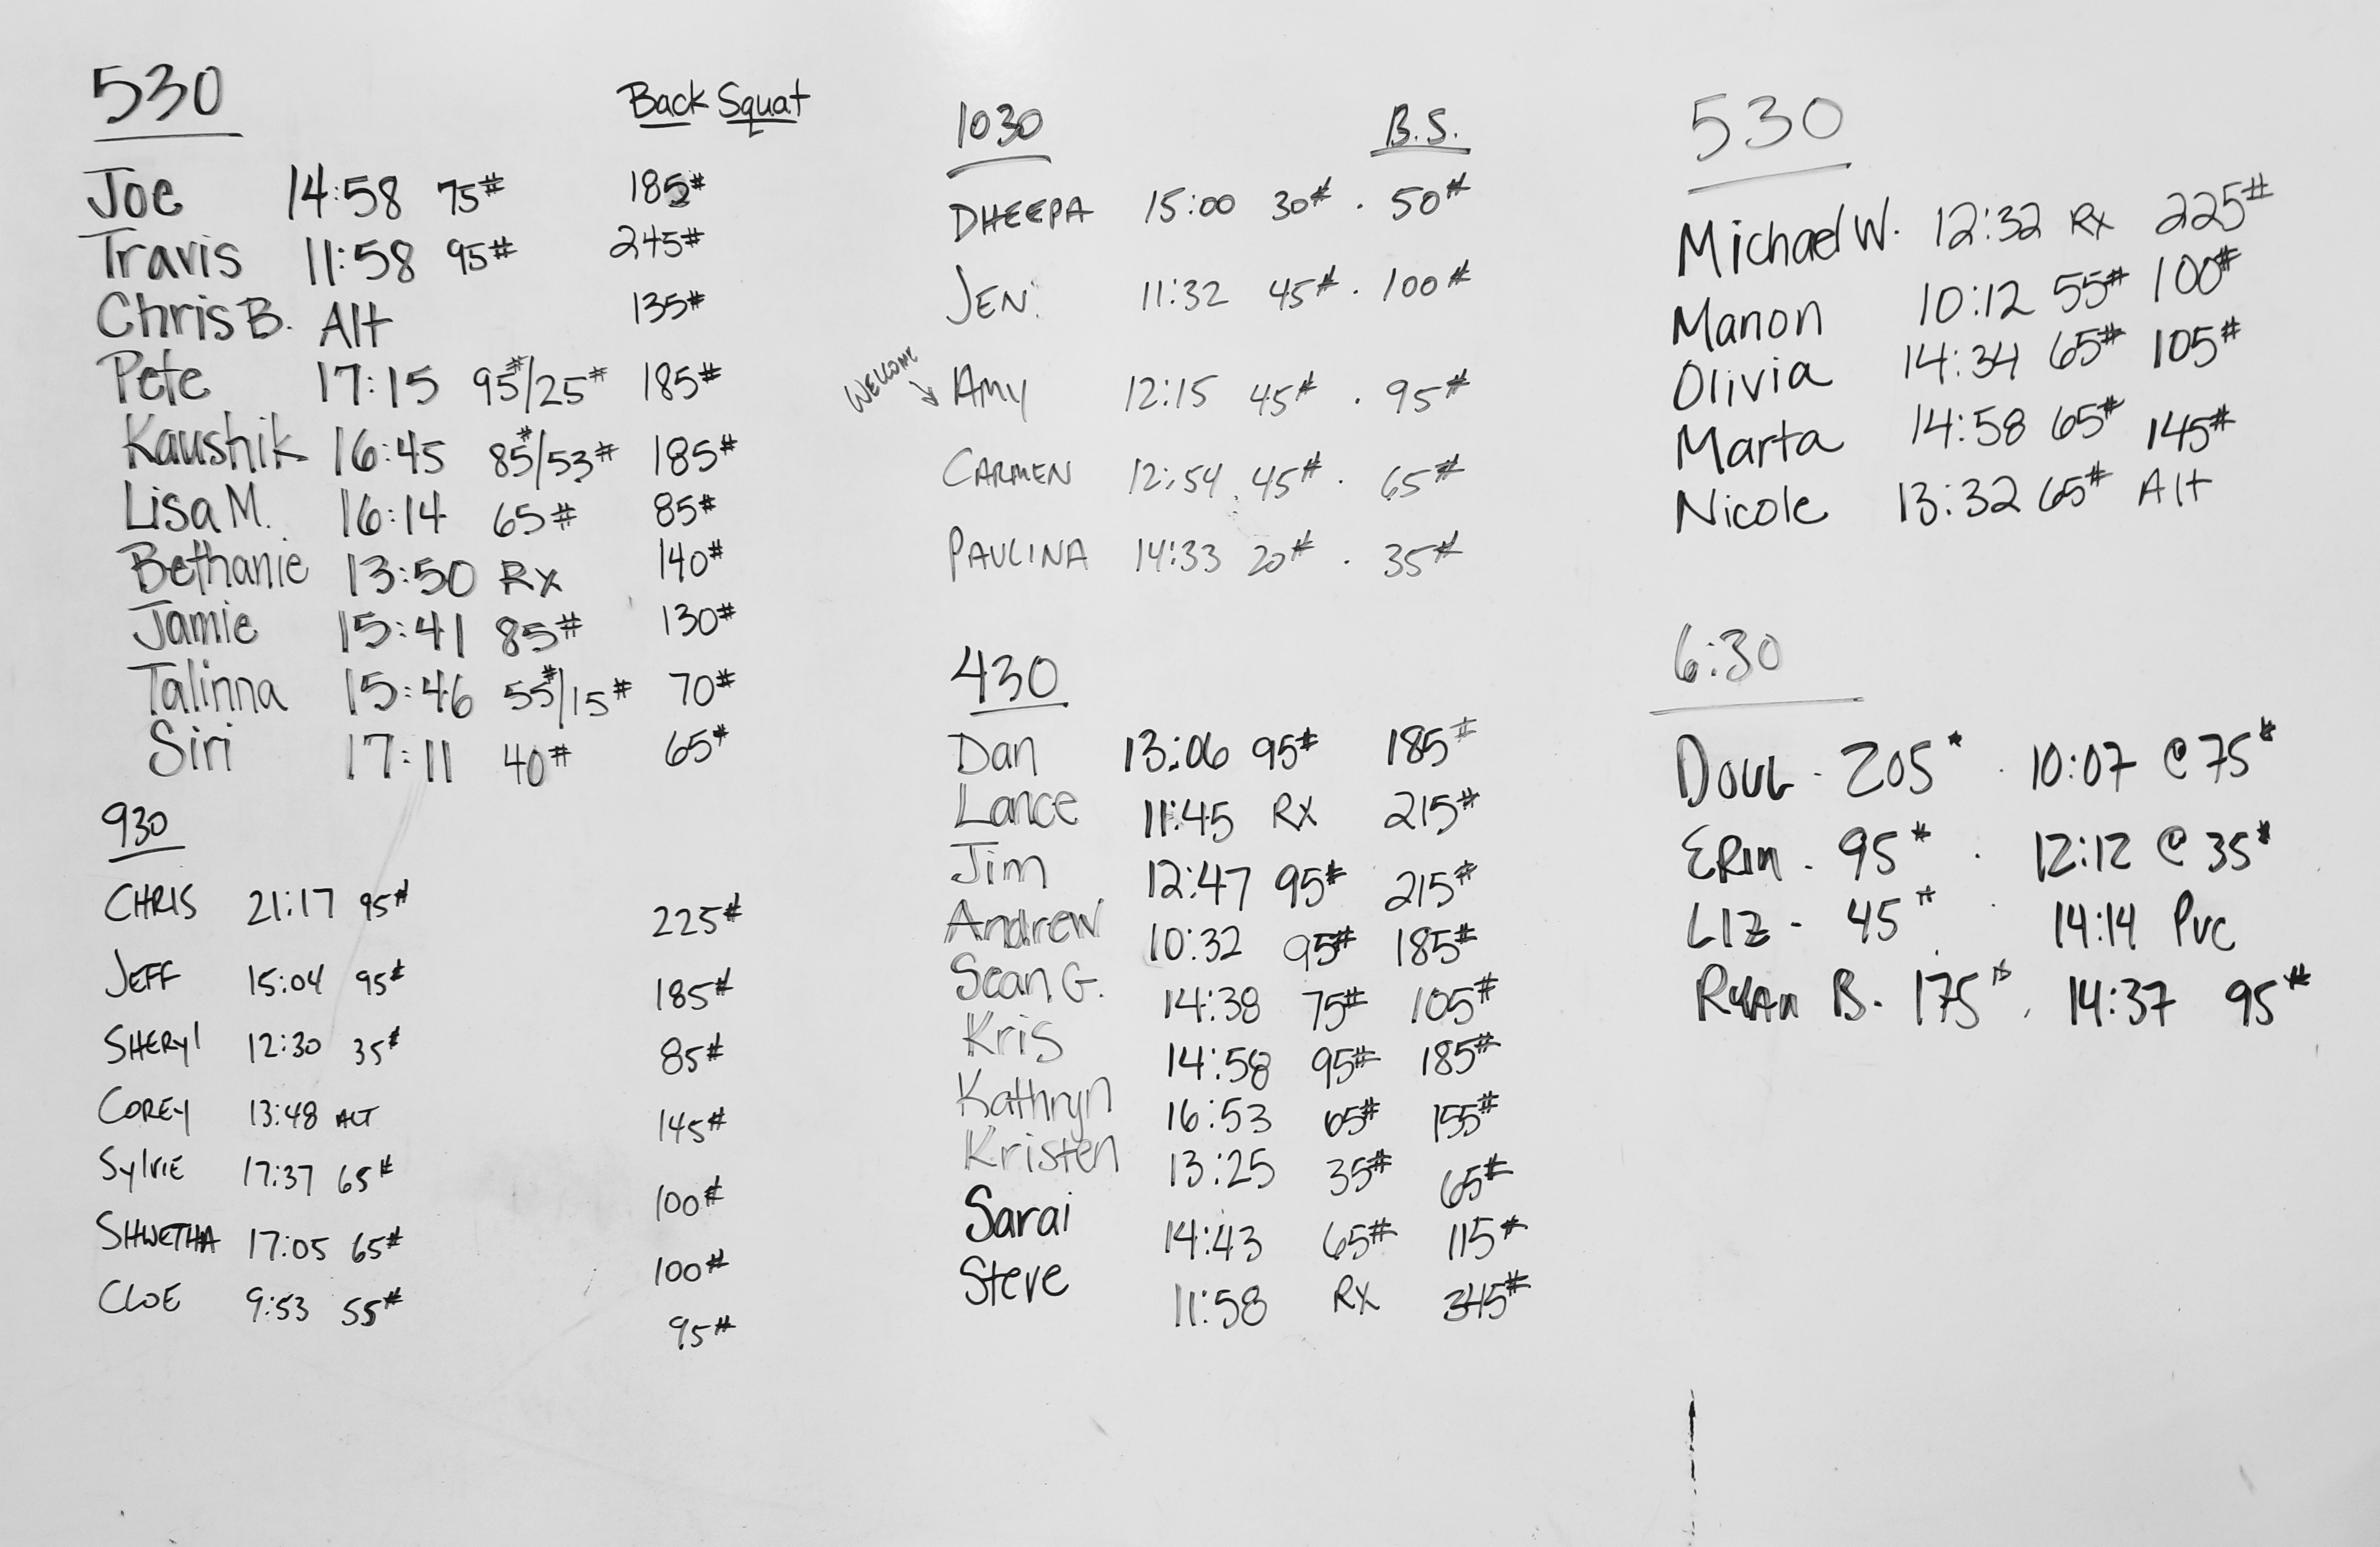 530 Back Squat
Joe 14:58 75# 185#
Travis 11:58 95# 245#
Chris B. Alt 135#
Pete 17:15 95#/25# 185#
Kaushik 16:45 85#/53# 185#
Lisa M. 16:14 65# 85#
Bethanie 13:50 Rx 140#
Jamie 15:41 85# 130#
Talinna 15:46 55#/15# 70#
Siri 17:11 40# 65#
930
CHRIS 21:17 95# 225#
JEFF 15:04 95# 185#
SHERYl 12:30 35# 85#
COREY 13:48 ALT 145#
SylviE 17:37 65# 100#
SHWETHA 17:05 65# 100#
CLOE 9:53 55# 95#
1030 B.S.
DHEEPA 15:00 30# . 50#
JEN. 11:32 45# . 100#
WELCOME
AMY 12:15 45# . 95#
CARMEN 12:54 45# . 65#
PAULINA 14:33 20# . 35#
430
Dan 13:06 95# 185#
Lance 11:45 RX 215#
Jim 12:47 95# 215#
Andrew 10:32 95# 185#
Sean G. 14:38 75# 105#
Kris 14:58 95# 185#
Kathryn 16:53 65# 155#
Kristen 13:25 35# 65#
Sarai 14:43 65# 115#
Steve 11:58 RX 345#
530
Michael W. 12:32 Rx 225#
Manon 10:12 55# 100#
Olivia 14:34 65# 105#
Marta 14:58 65# 145#
Nicole 13:32 65# Alt
6:30
DOUG - 205# . 10:07 @ 75#
ERIN - 95# . 12:12 @ 35#
LIZ - 45# . 14:14 PVC
RYAN B. 175# . 14:37 95#